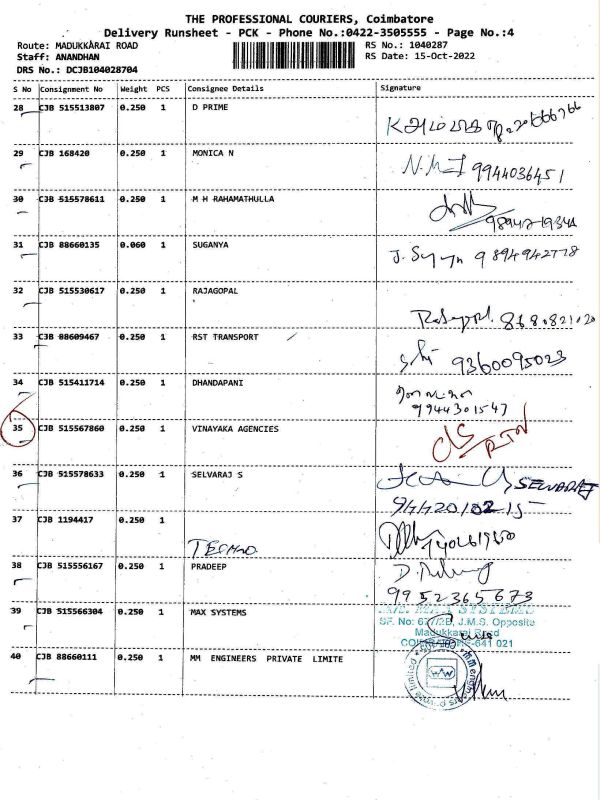 THE PROFESSIONAL COURIERS, Coimbatore
Delivery Runsheet - PCK - Phone No.:0422-3505555 - Page No.:4
Route: MADUKKARAI ROAD
RS No.: 1040287
Staff: ANANDHAN
RS Date: 15-Oct-2022
DRS No.: DCJB104028704
S No Consignment No Weight PCS Consignee Details Signature
28 CJB 515513807 0.250 1 D PRIME
29 CJB 168420 0.250 1 MONICA N 9944036451
30 CJB 515578611 0.250 1 M H RAHAMATHULLA
31 CJB 88660135 0.060 1 SUGANYA 9894942778
32 CJB 515530617 0.250 1 RAJAGOPAL 8680821020
33 CJB 88609467 0.250 1 RST TRANSPORT 9360095023
34 CJB 515411714 0.250 1 DHANDAPANI
9944301547
35 CJB 515567860 0.250 1 VINAYAKA AGENCIES RTN
36 CJB 515578633 0.250 1 SELVARAJ S SELVARAJ
37 CJB 1194417 0.250 1
TECHNO
38 CJB 515556167 0.250 1 PRADEEP
9952365673
39 CJB 515566304 0.250 1 MAX SYSTEMS
J.M.S. Opposite
Madukkarai Road
641 021
40 CJB 88660111 0.250 1 MM ENGINEERS PRIVATE LIMITE